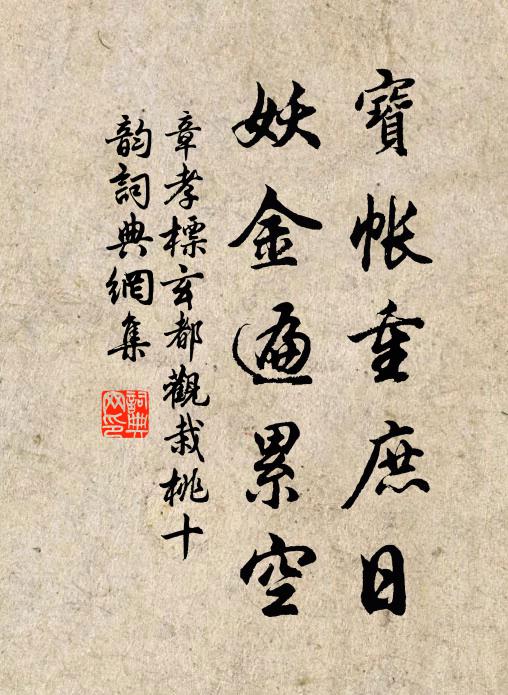 寶帳重庶日
妖金遍累空
章孝標玄都觀栽桃十
韵詞典網集
詞典網印